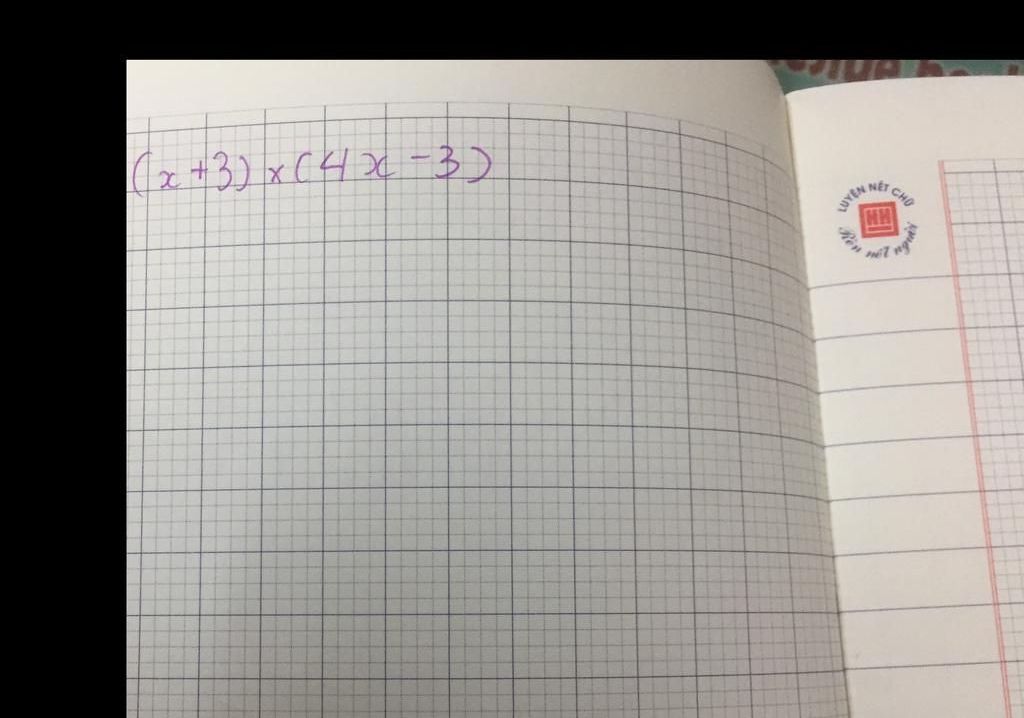 (x+3) x (4x-3)
LUYỆN NÉT CHỮ
HH
Rèn nết người